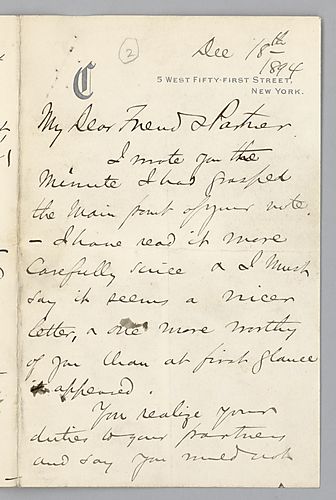 2
Dec 18th
1894
C
5 WEST FIFTY-FIRST STREET,
NEW YORK.
My Dear Friend & Partner
I wrote you the
minute I had grasped
the main point of your note.
— I have read it more
carefully since & I must
say it seems a nicer
letter, & one more worthy
of you than at first glance
it appeared.
You realize your
duties to your partners
and say you would not